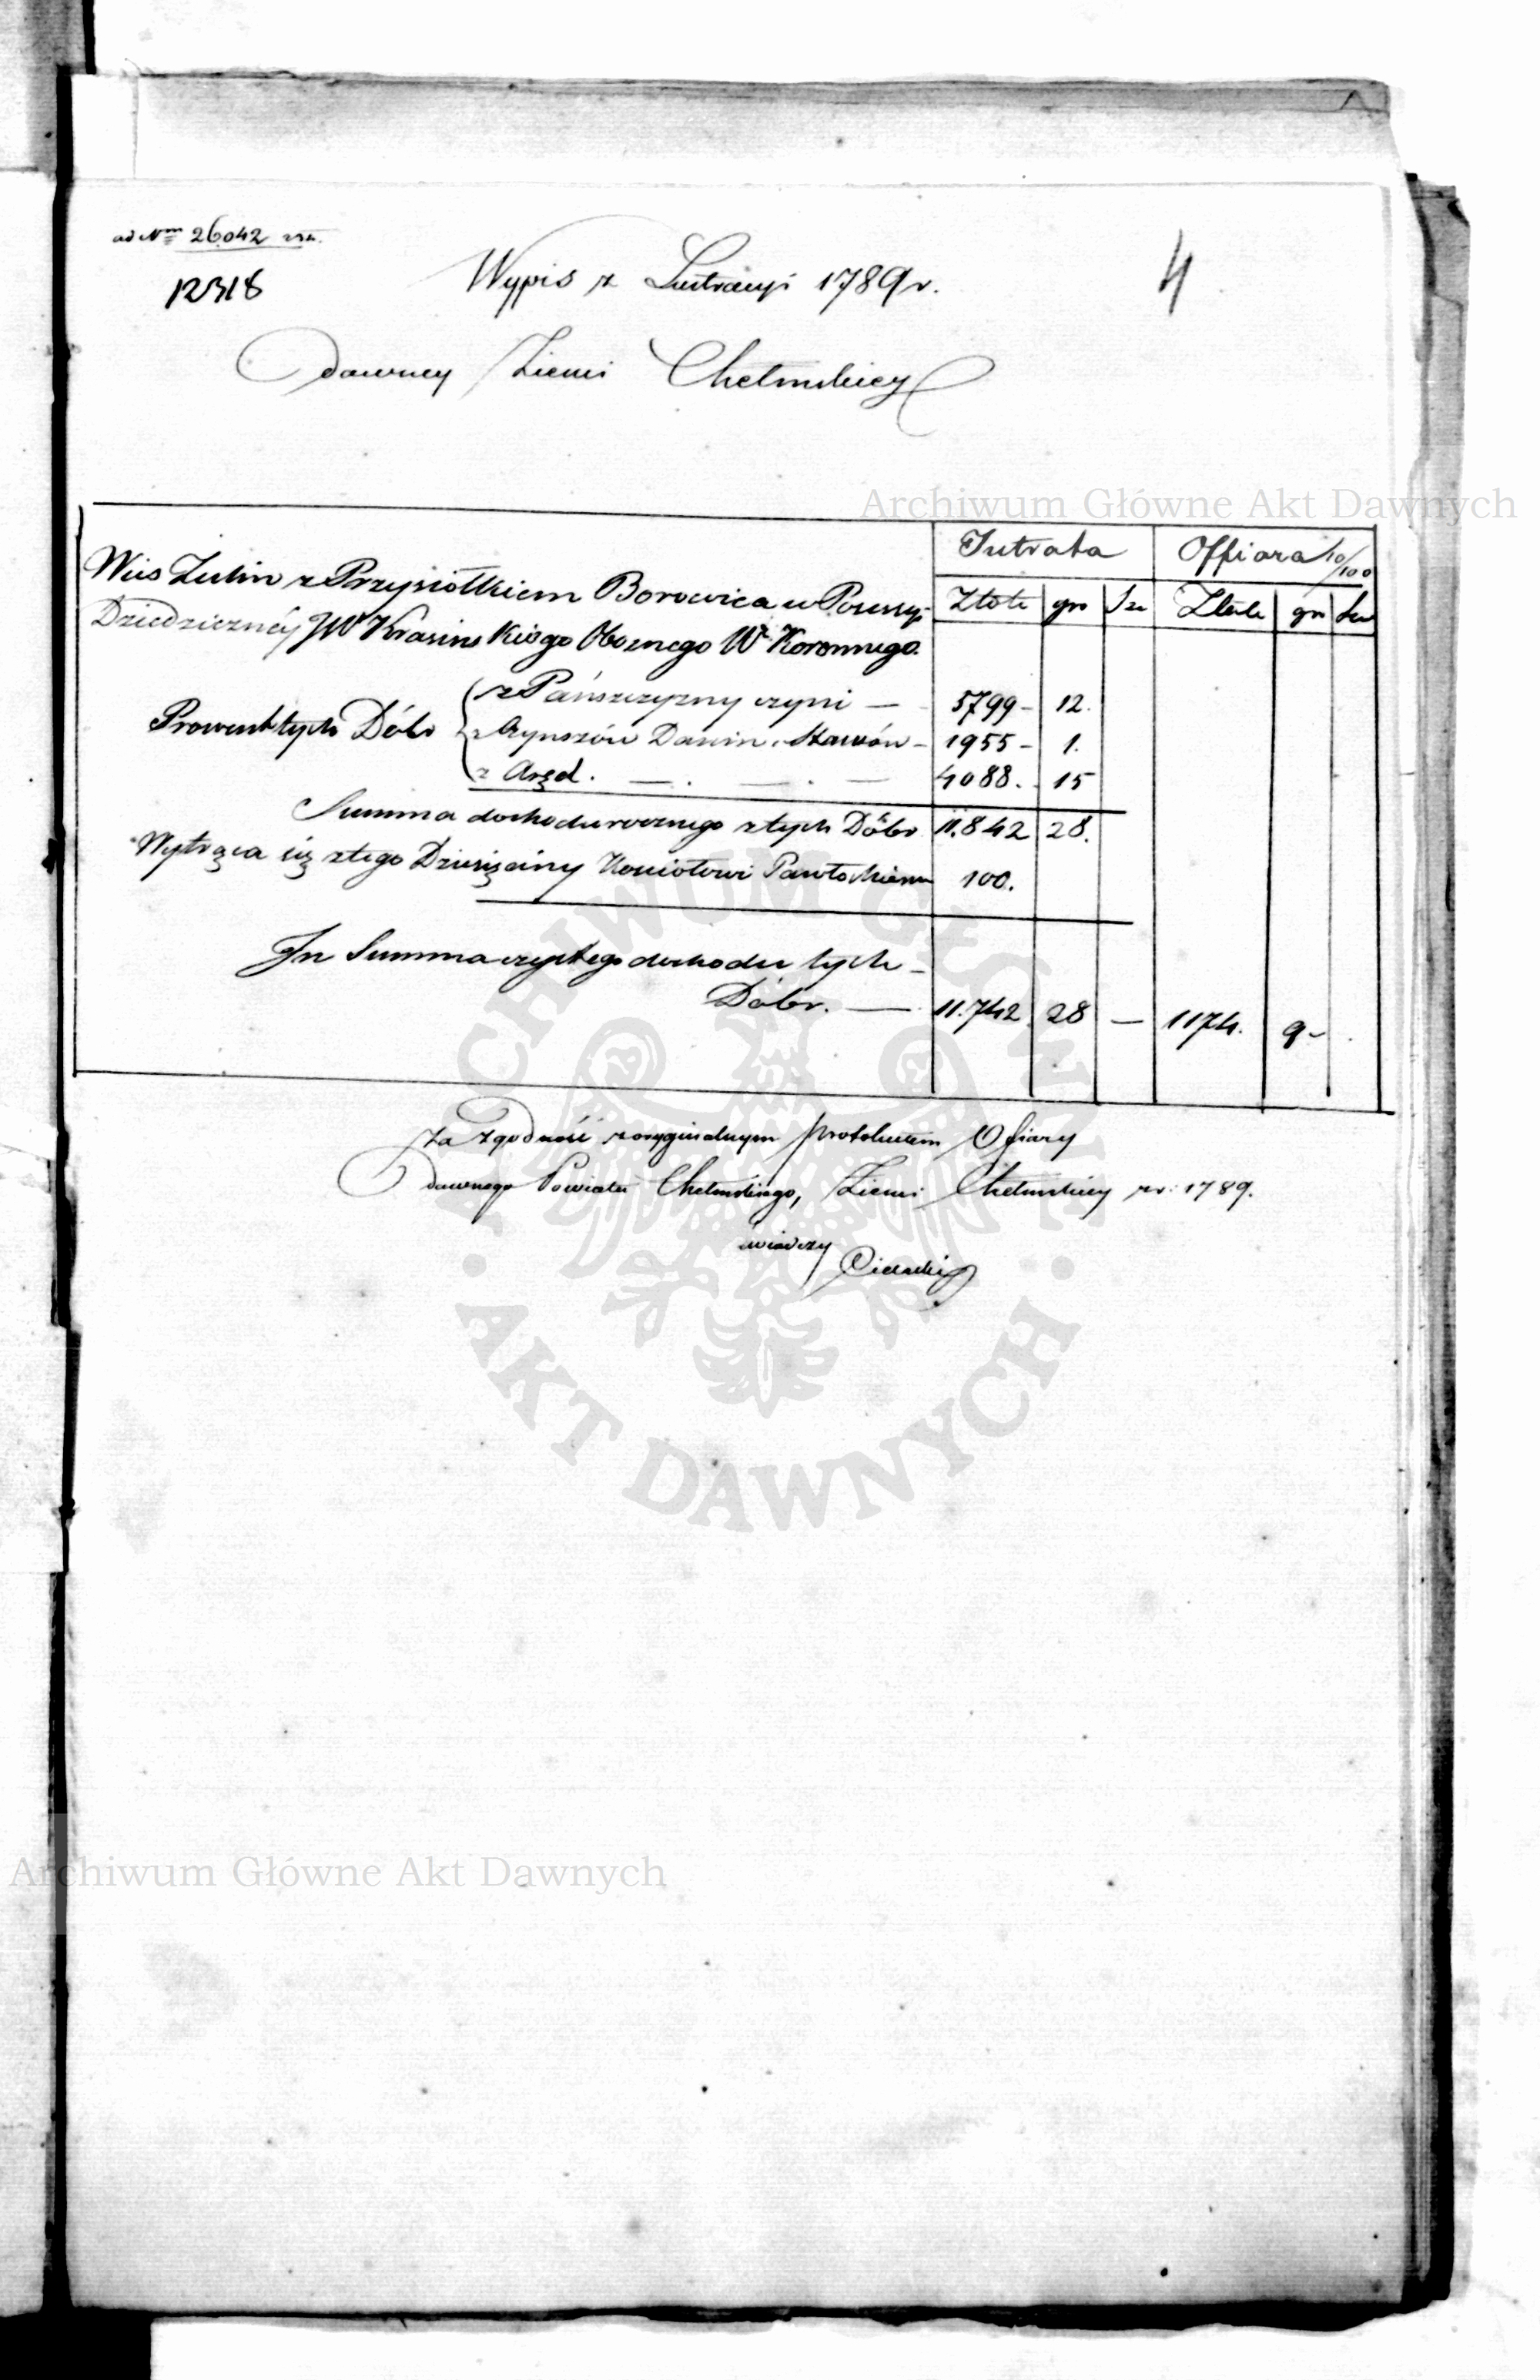 ad Nrm 26042
12318
Wypis z Lustracyi 1789 r.
4
dawney Ziemi Chełmskiey
Archiwum Główne Akt Dawnych
Intrata Offiara 10/100
Złote gro Sze Złote gro Sze
Wieś Żulin z Przysiołkiem Borowica w Possesyi
Dziedziczney JW Krasinskiego Oboznego W. Koronnego.
z Pańszczyzny czyni — 5799 - 12.
Prowent tych Dóbr z Czynszów Danin, Stawów - 1955 - 1.
z Aręd. — . — . — 4088. 15
Summa dochodu rocznego z tych Dóbr 11.842 28.
Wytrąca się z tego Dziesięciny Kościołowi Pawłowskiemu 100.
In Summa czystego dochodu tych -
Dóbr. — 11.742 28 — 1174. 9 -
Za zgodność z oryginalnym protokułem Ofiary
dawnego Powiatu Chełmskiego, Ziemi Chełmskiey z r: 1789.
świadczy
ARCHIWUM GŁÓWNE AKT DAWNYCH
Archiwum Główne Akt Dawnych